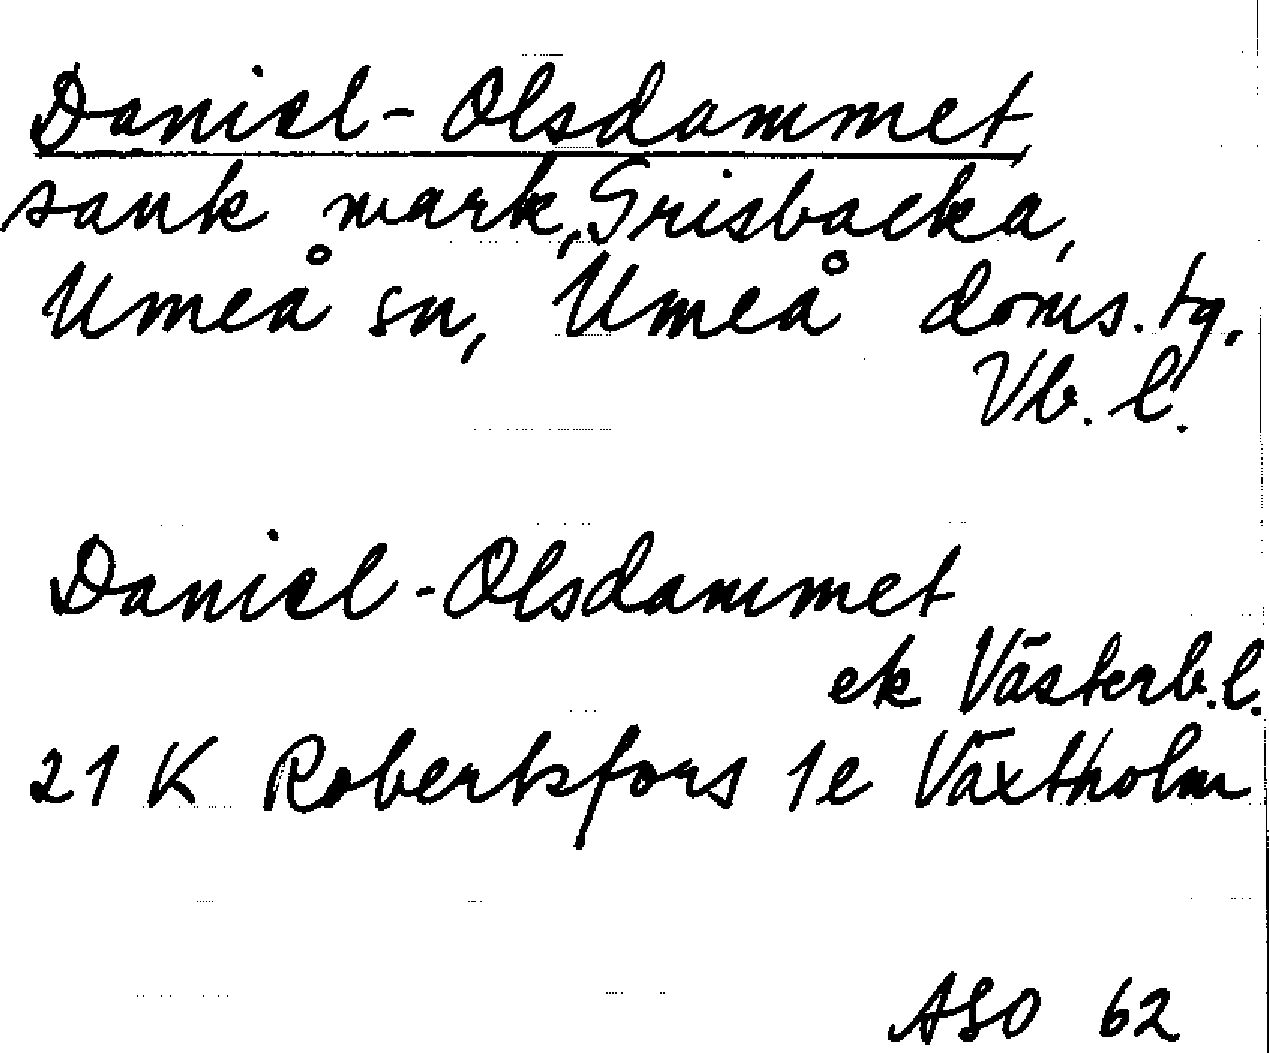 Daniel-Olsdammet
sank mark, Grisbacka,
Umeå sn, Umeå doms. tg.
Vb. l.
Daniel-Olsdammet
ek Västerb. l.
21 K Robertsfors 1e Växtholm
ASO 62